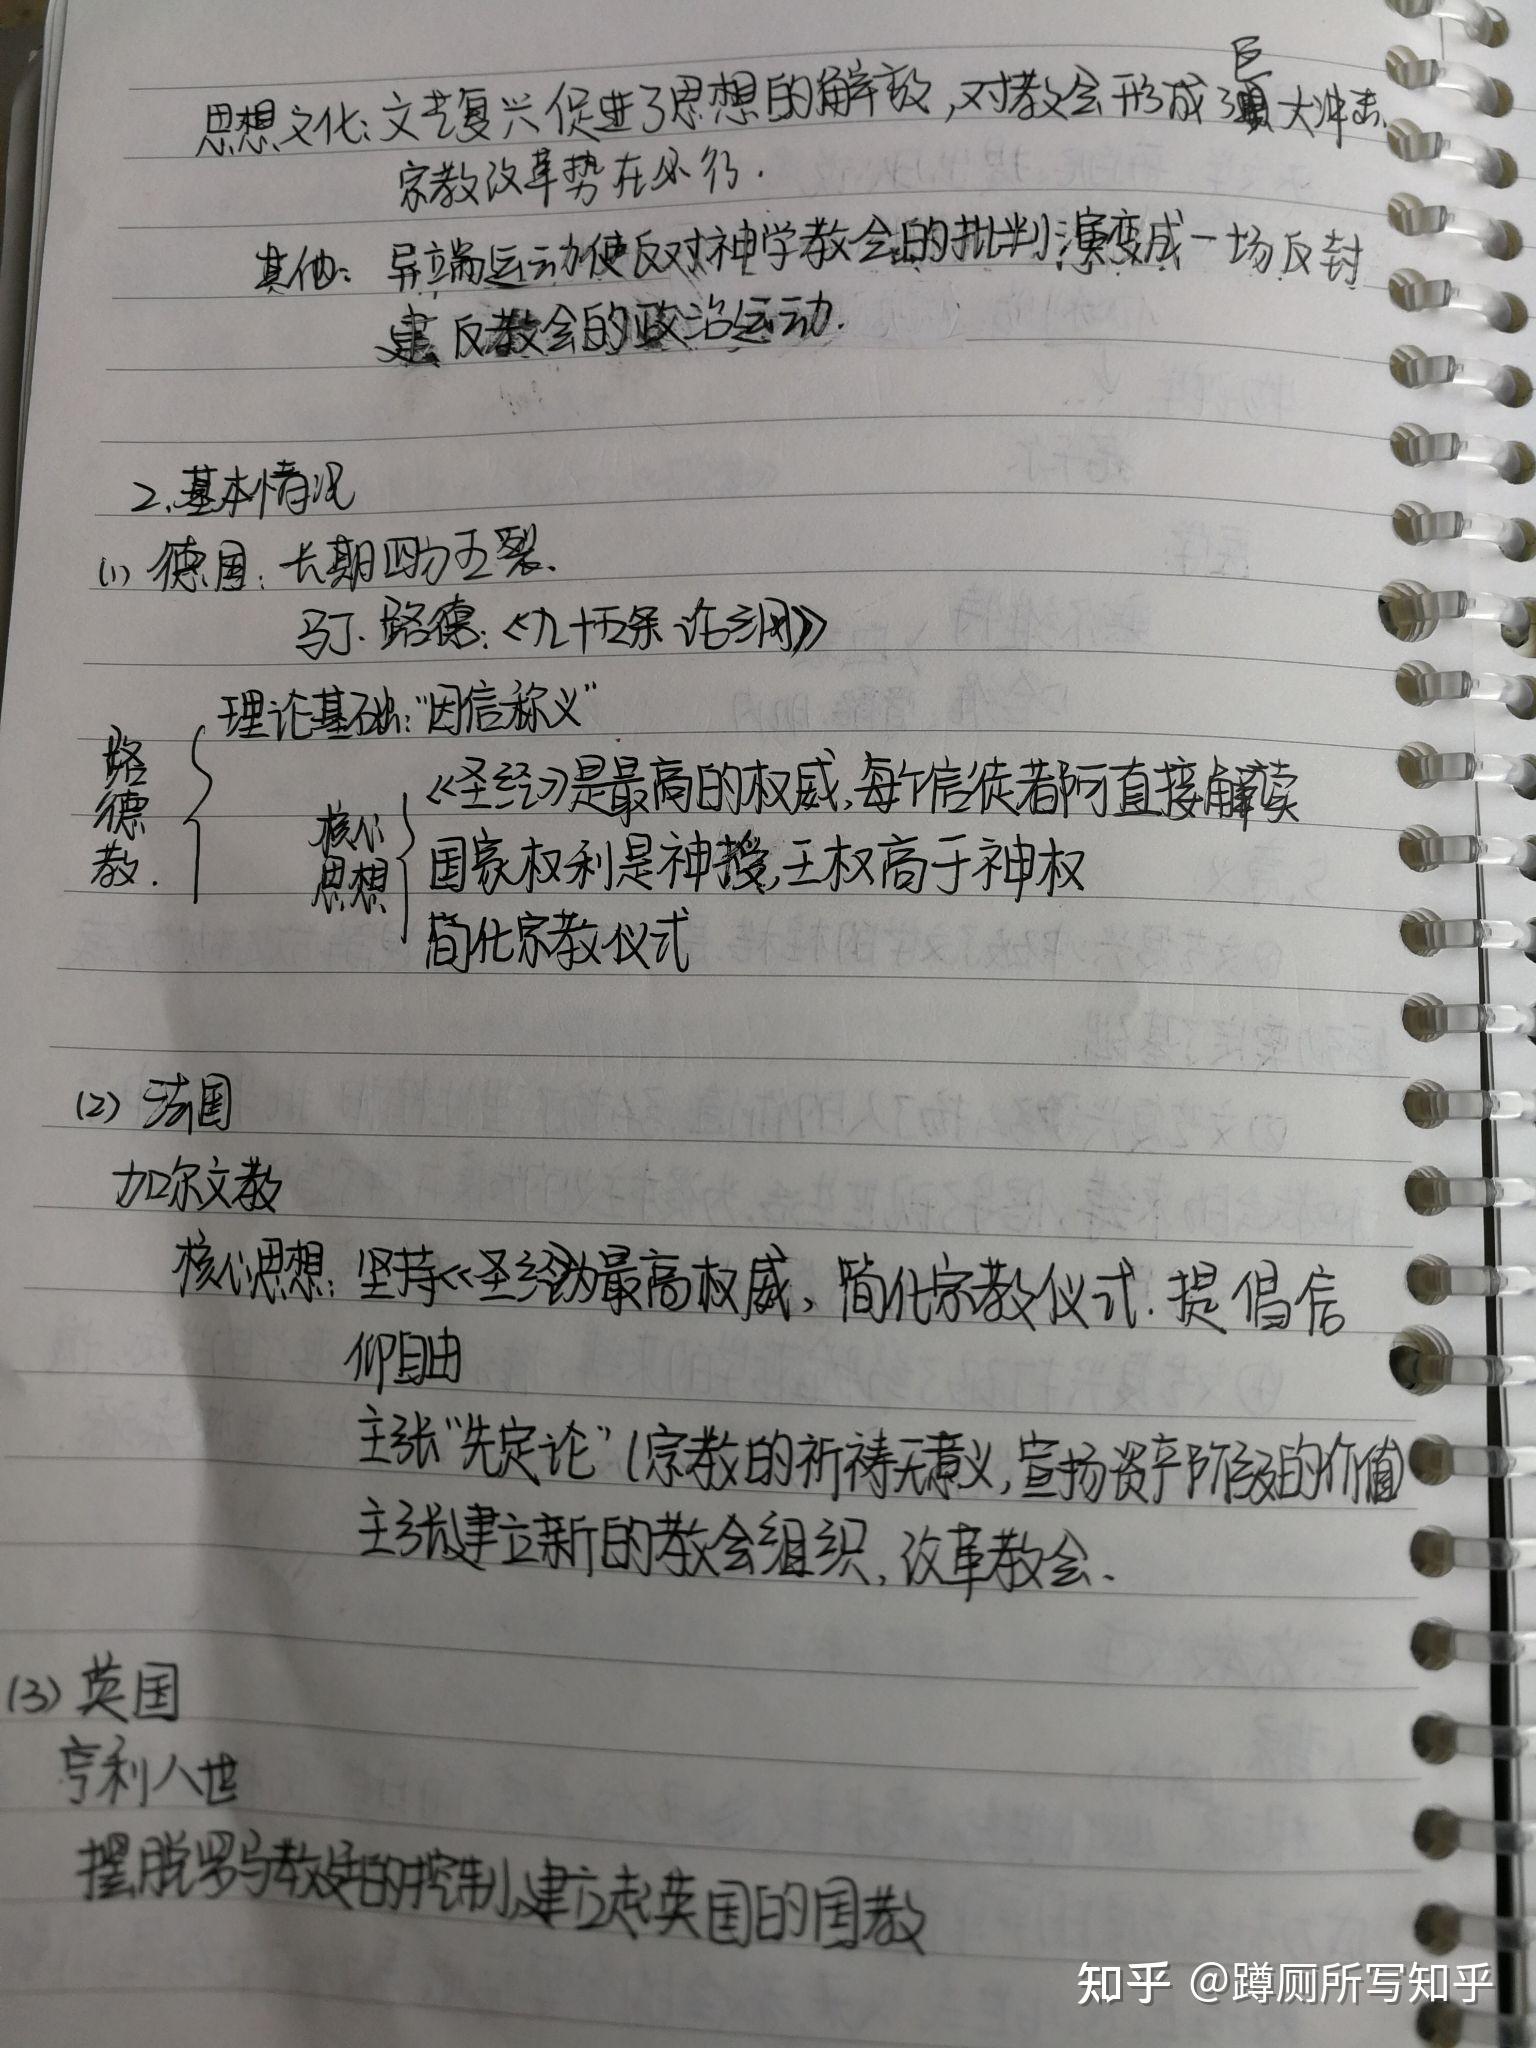 思想文化:文艺复兴促进了思想的解放,对教会形成了巨大冲击.
宗教改革势在必行.
其他:异端运动使反对神学教会的批判演变成一场反封
建反教会的政治运动.
2.基本情况
(1)德国:长期四分五裂.
马丁.路德:《九十五条论纲》
路德教.
理论基础:“因信称义”
核心思想
《圣经》是最高的权威,每个信徒者都可直接解读
国家权利是神授,王权高于神权
简化宗教仪式
(2)法国
加尔文教
核心思想:坚持《圣经》为最高权威,简化宗教仪式.提倡信
仰自由
主张“先定论”(宗教的祈祷无意义,宣扬资产阶级的价值)
主张建立新的教会组织,改革教会.
(3)英国
亨利八世
摆脱罗马教廷的控制,建立起英国的国教
知乎 @蹲厕所写知乎